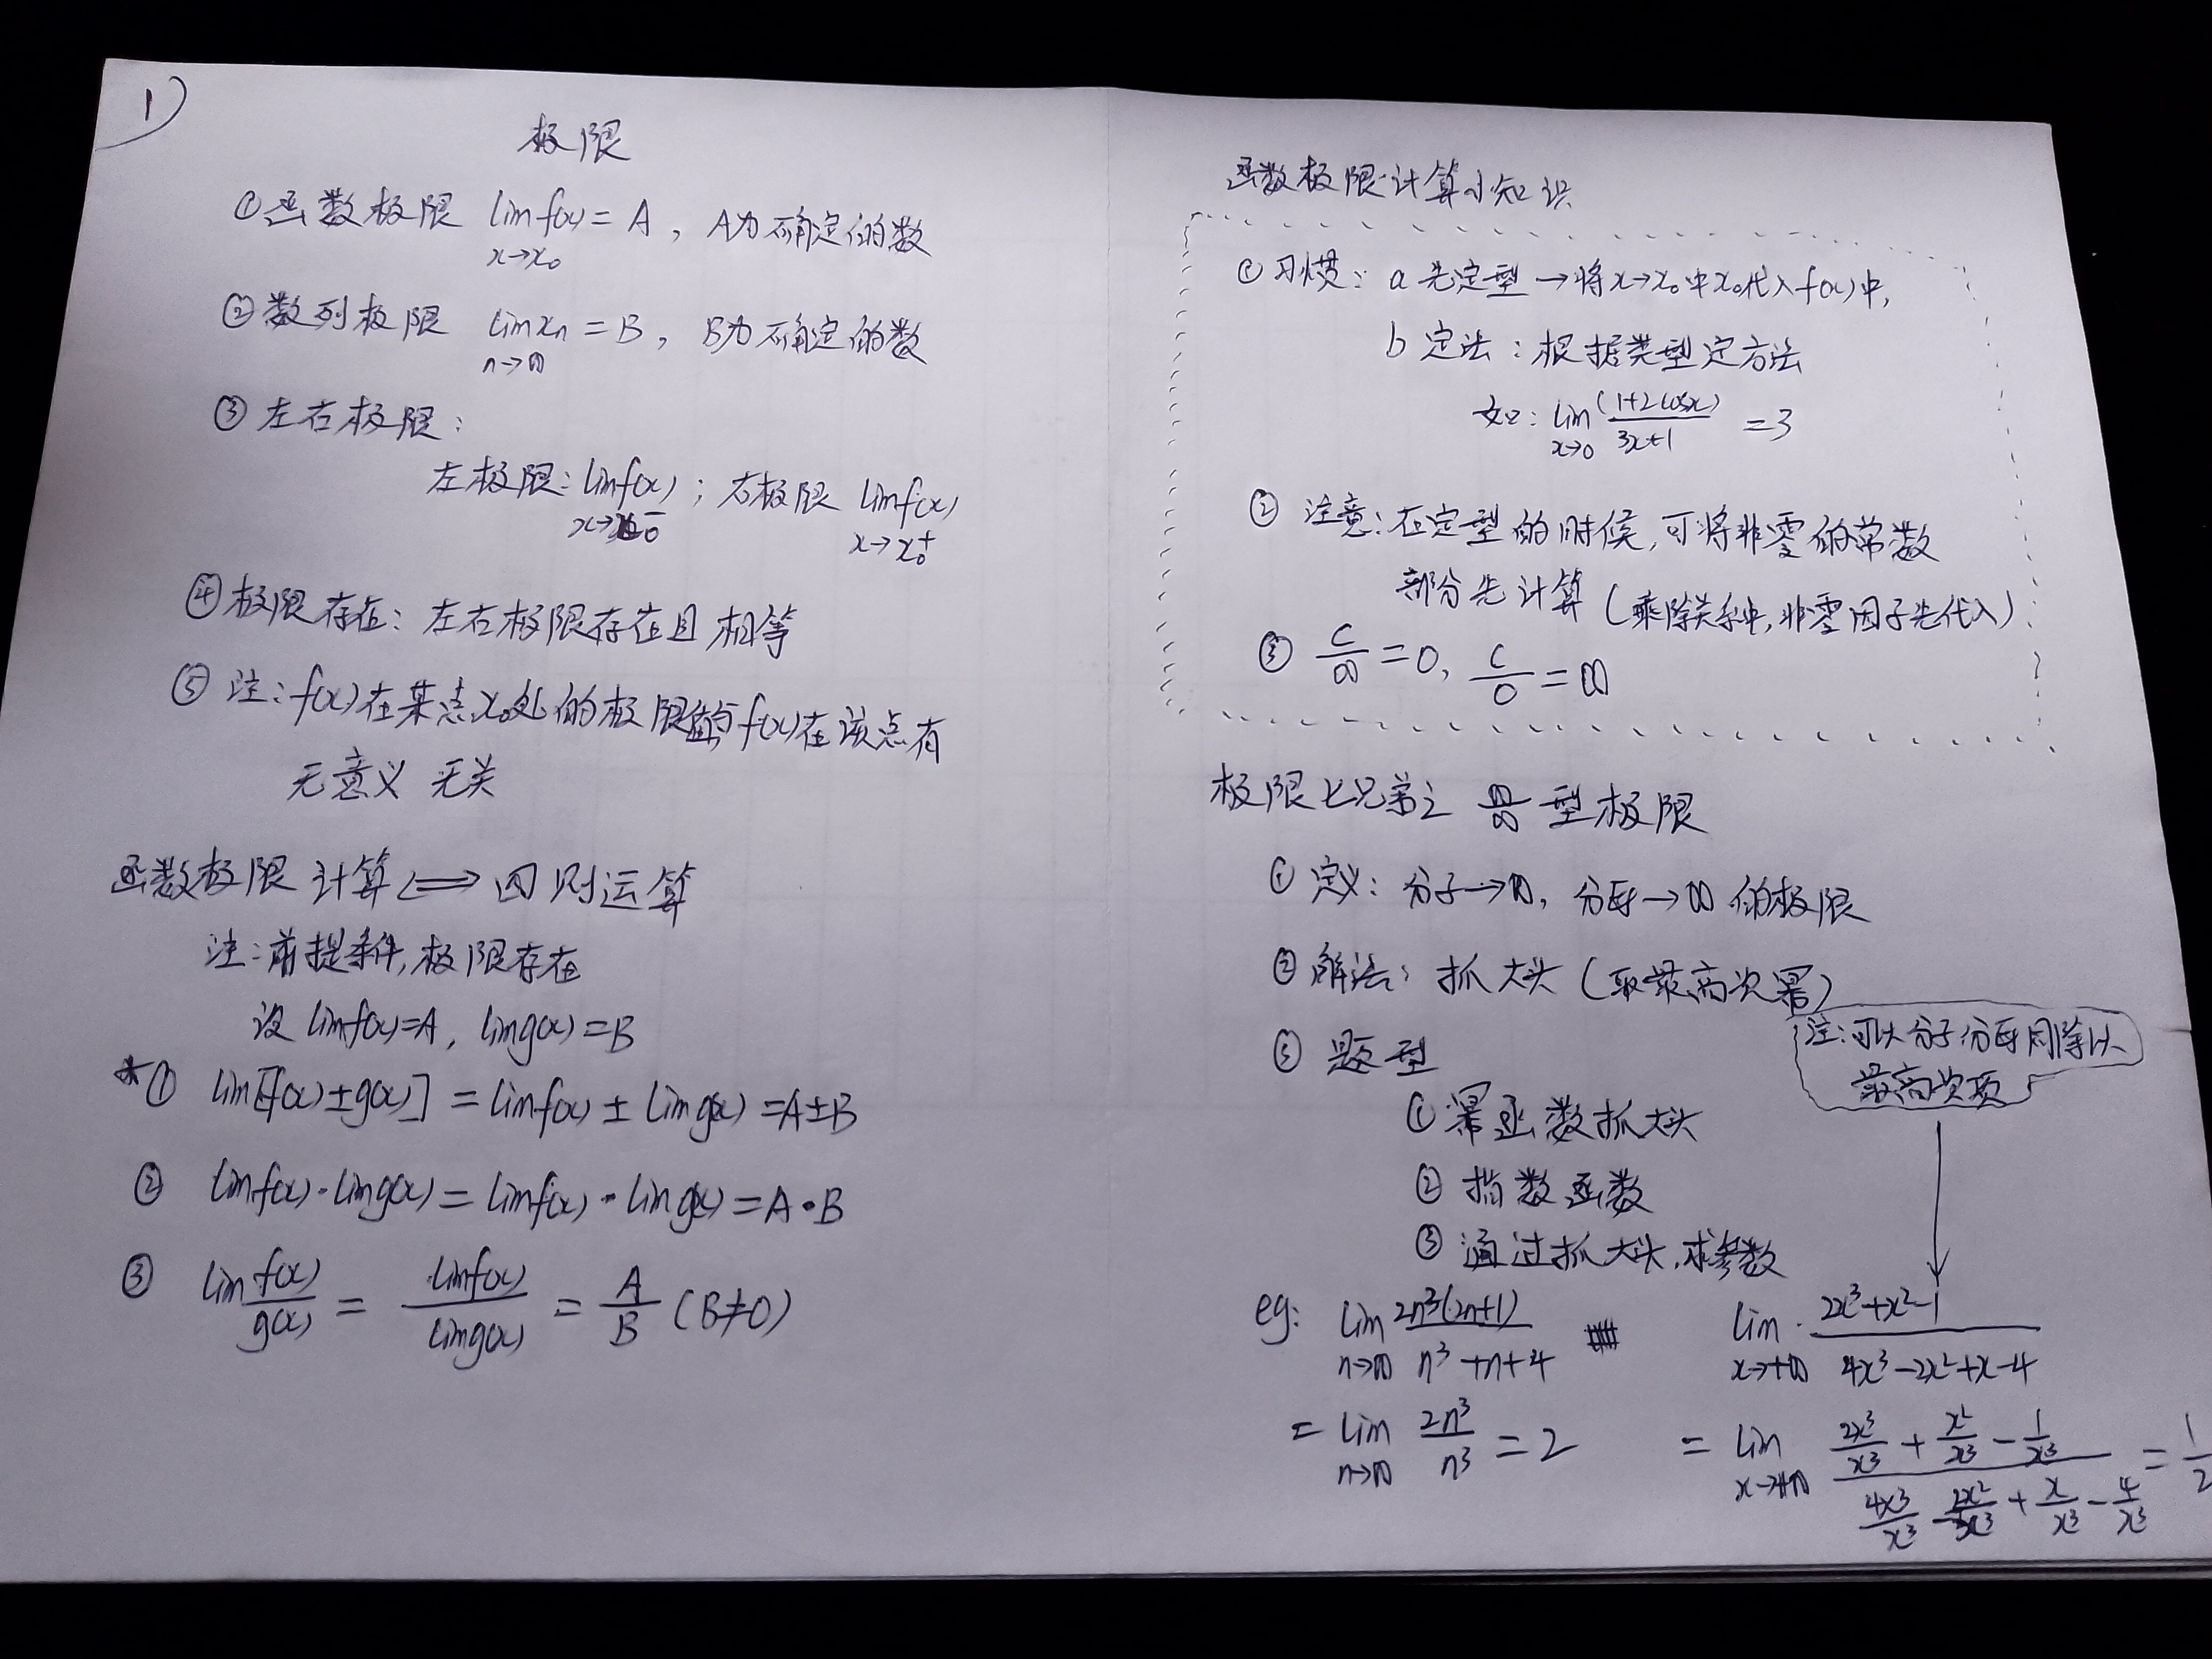 1)
极限
① 函数极限 lim f(x) = A , A为确定的数
x→x₀
② 数列极限 lim xₙ = B , B为确定的数
n→∞
③ 左右极限:
左极限: lim f(x) ; 右极限 lim f(x)
x→x₀⁻ x→x₀⁺
④ 极限存在: 左右极限存在且相等
⑤ 注: f(x)在某点x₀处的极限值与f(x)在该点有
无意义 无关
函数极限 计算 ⟺ 四则运算
注: 前提条件, 极限存在
设 lim f(x)=A , lim g(x)=B
*① lim[f(x)±g(x)] = lim f(x) ± lim g(x) = A±B
② lim f(x)·lim g(x) = lim f(x)·lim g(x) = A·B
③ lim f(x)/g(x) = lim f(x)/lim g(x) = A/B (B≠0)
函数极限计算小知识
① 习惯: a 先定型→将x→x₀中x₀代入f(x)中,
b 定法: 根据类型定方法
如: lim (1+2cosx)/3x+1 = 3
x→0
② 注意: 在定型的时候, 可将非零的常数
部分先计算 (乘除关系中, 非零因子先代入)
③ C/∞ = 0, C/0 = ∞
极限七兄弟之 ∞/∞ 型极限
① 定义: 分子→∞, 分母→∞ 的极限
② 解法: 抓大头 (取最高次幂)
注: 可以分子分母同除以
最高次项
③ 题型
① 幂函数抓大头
② 指数函数
③ 通过抓大头, 求参数
eg: lim 2n³(2n+1)/n³+n+4
n→∞
= lim 2n³/n³ = 2
n→∞
lim 2x³+x²-1/4x³-2x²+x-4
x→+∞
= lim (2x³/x³ + x²/x³ - 1/x³)/(4x³/x³ - 2x²/x³ + x/x³ - 4/x³) = 1/2
x→+∞